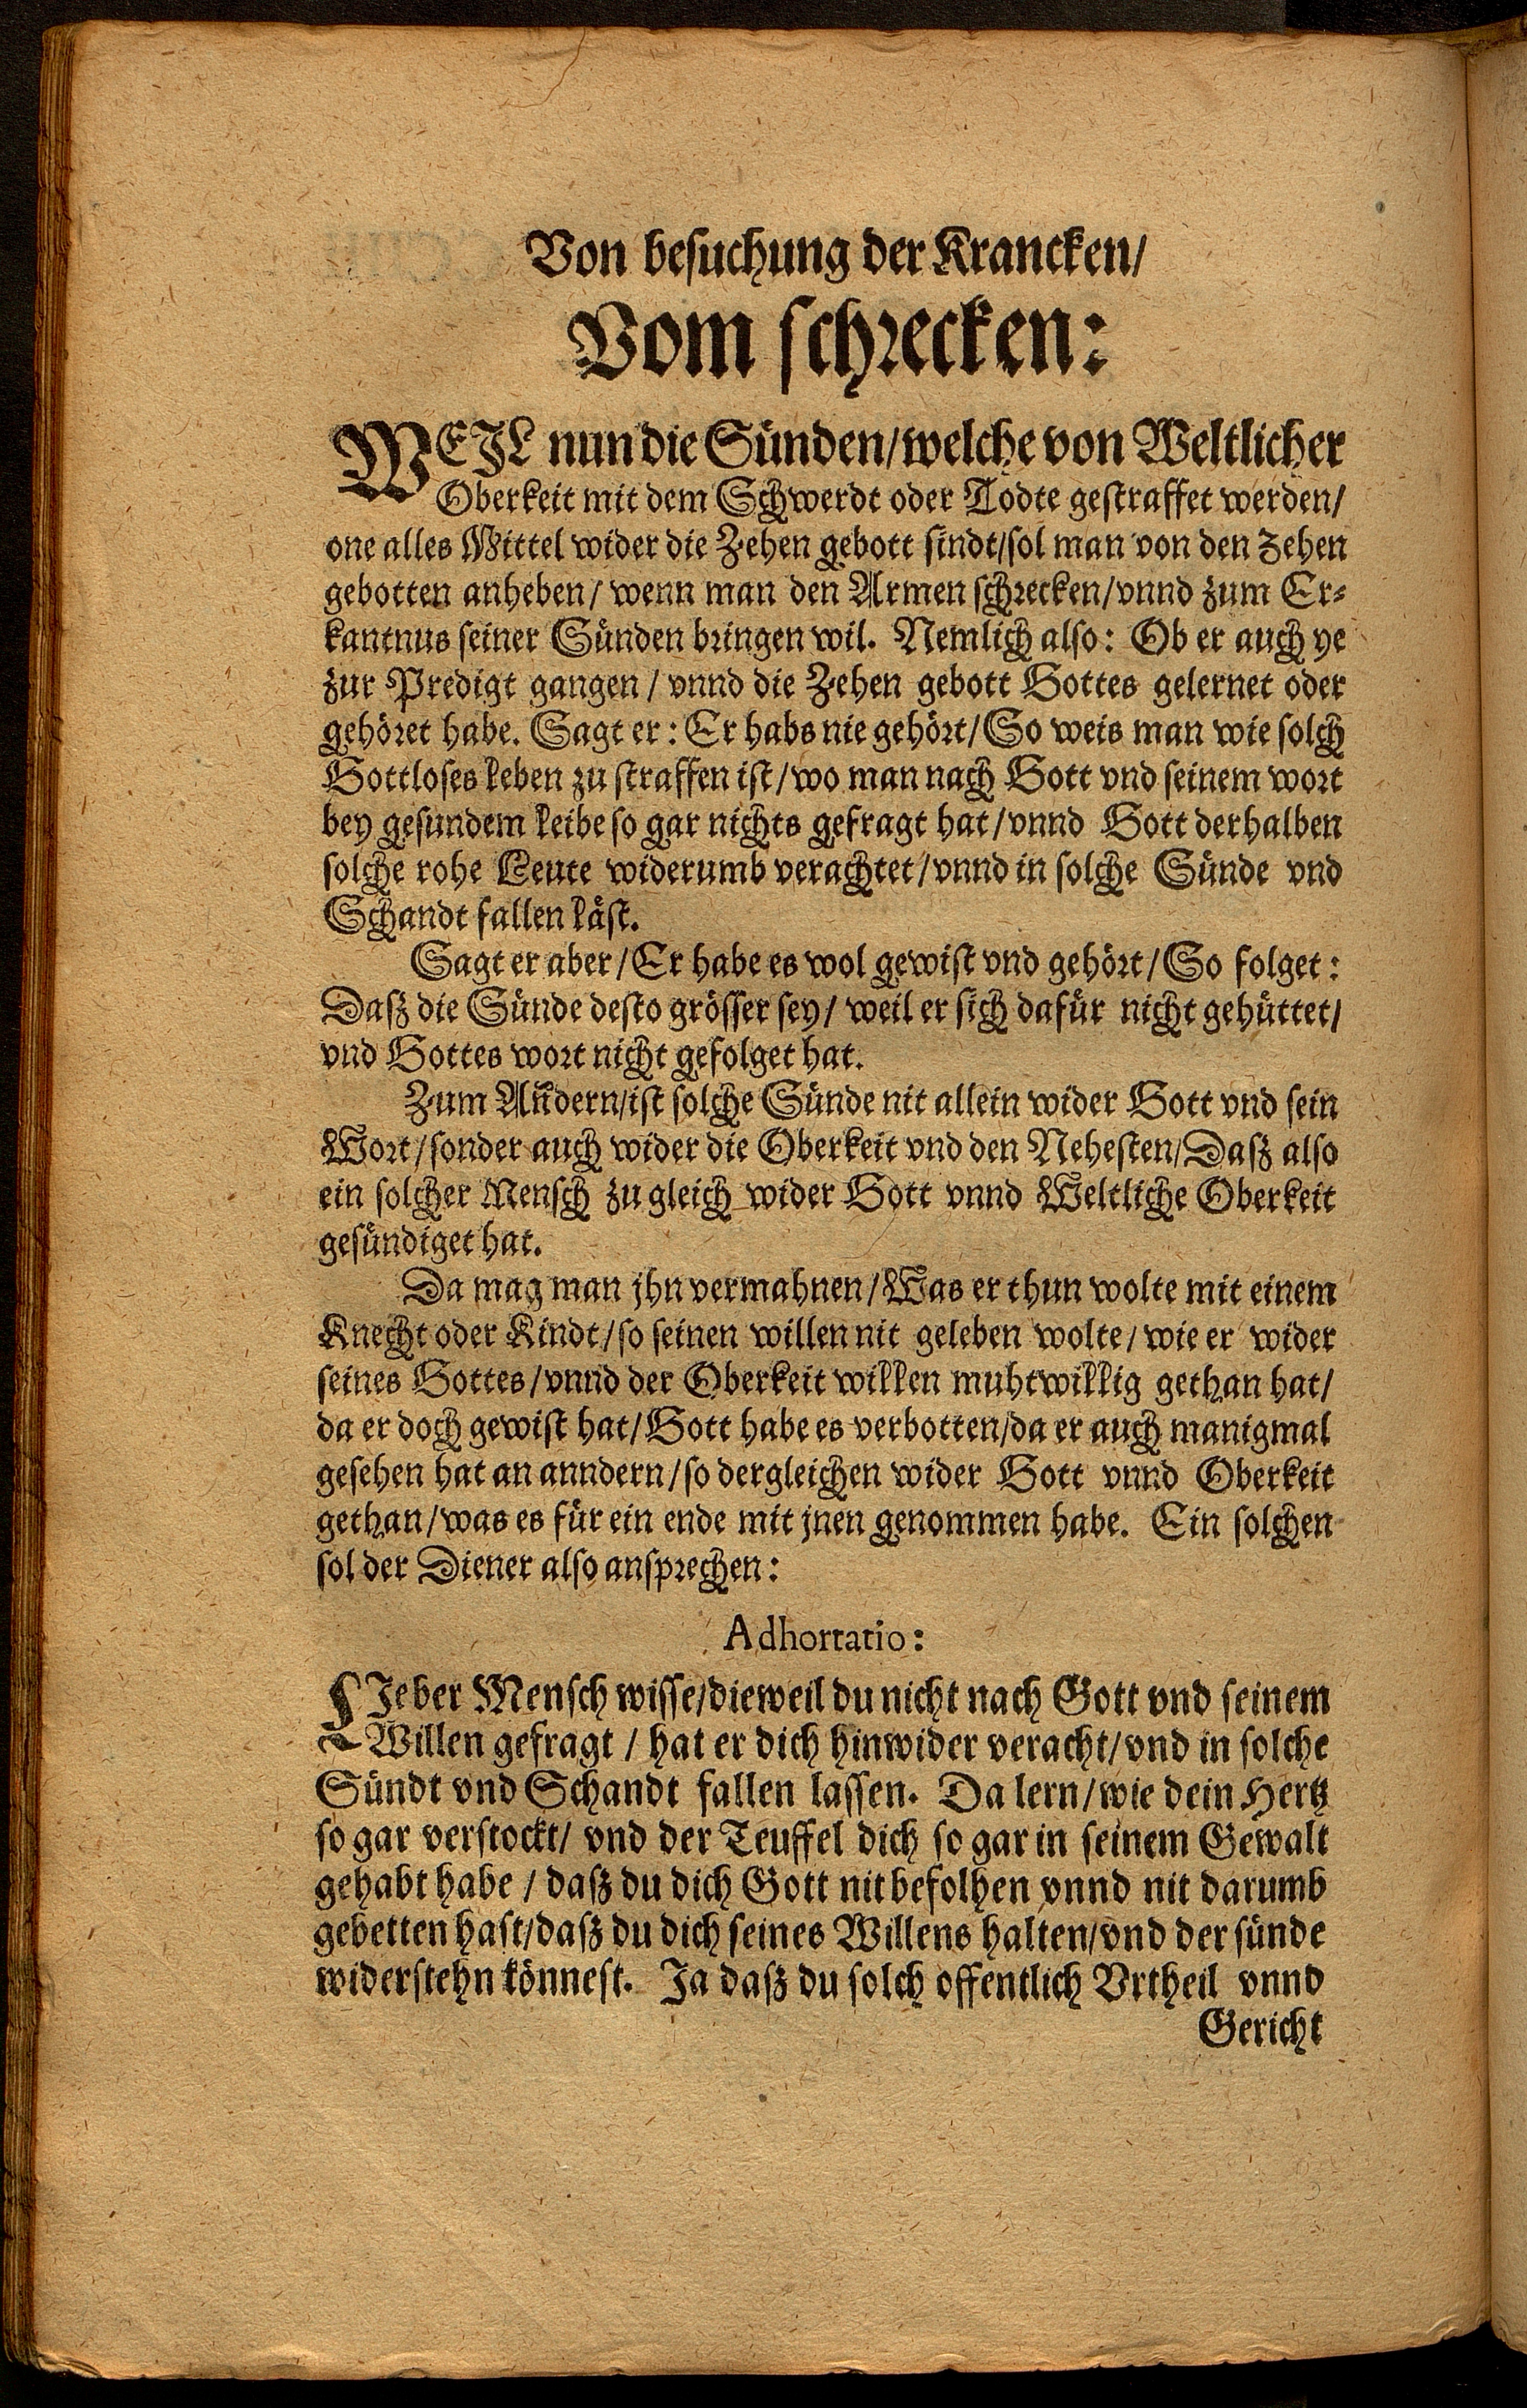 Von besuchung der Krancken/
Vom schrecken:
WEJL nun die Sünden/welche von Weltlicher
Oberkeit mit dem Schwerdt oder Todte gestraffet werden/
one alles Mittel wider die Zehen gebott sindt/sol man von den zehen
gebotten anheben/ wenn man den Armen schrecken/vnnd zum Er-
kantnus seiner Sünden bringen wil. Nemlich also: Ob er auch ye
zur Predigt gangen/ vnnd die Zehen gebott Gottes gelernet oder
gehöret habe. Sagt er: Er habs nie gehört/So weis man wie solch
Gottloses leben zu straffen ist/wo man nach Gott vnd seinem wort
bey gesundem leibe so gar nichts gefragt hat/vnnd Gott derhalben
solche rohe Leute widerumb verachtet/vnnd in solche Sünde vnd
Schandt fallen läst.
Sagt er aber/Er habe es wol gewist vnd gehört/So folget:
Dasz die Sünde desto grösser sey/ weil er sich dafür nicht gehüttet/
vnd Gottes wort nicht gefolget hat.
Zum Andern/ist solche Sünde nit allein wider Gott vnd sein
Wort/sonder auch wider die Oberkeit vnd den Nehesten/Dasz also
ein solcher Mensch zu gleich wider Gott vnnd Weltliche Oberkeit
gesündiget hat.
Da mag man jhn vermahnen/Was er thun wolte mit einem
Knecht oder Kindt/so seinen willen nit geleben wolte/wie er wider
seines Gottes/vnnd der Oberkeit willen muhtwillig gethan hat/
da er doch gewist hat/Gott habe es verbotten/da er auch manigmal
gesehen hat an anndern/so dergleichen wider Gott vnnd Oberkeit
gethan/was es für ein ende mit jnen genommen habe. Ein solchen
sol der Diener also ansprechen:
Adhortatio:
LJeber Mensch wisse/dieweil du nicht nach Gott vnd seinem
Willen gefragt/ hat er dich hinwider veracht/vnd in solche
Sündt vnd Schandt fallen lassen. Da lern/wie dein Hertz
so gar verstockt/ vnd der Teuffel dich so gar in seinem Gewalt
gehabt habe/ dasz du dich Gott nit befolhen vnnd nit darumb
gebetten hast/dasz du dich seines Willens halten/vnd der sünde
widerstehn könnest. Ja dasz du solch offentlich Vrtheil vnnd
Gericht